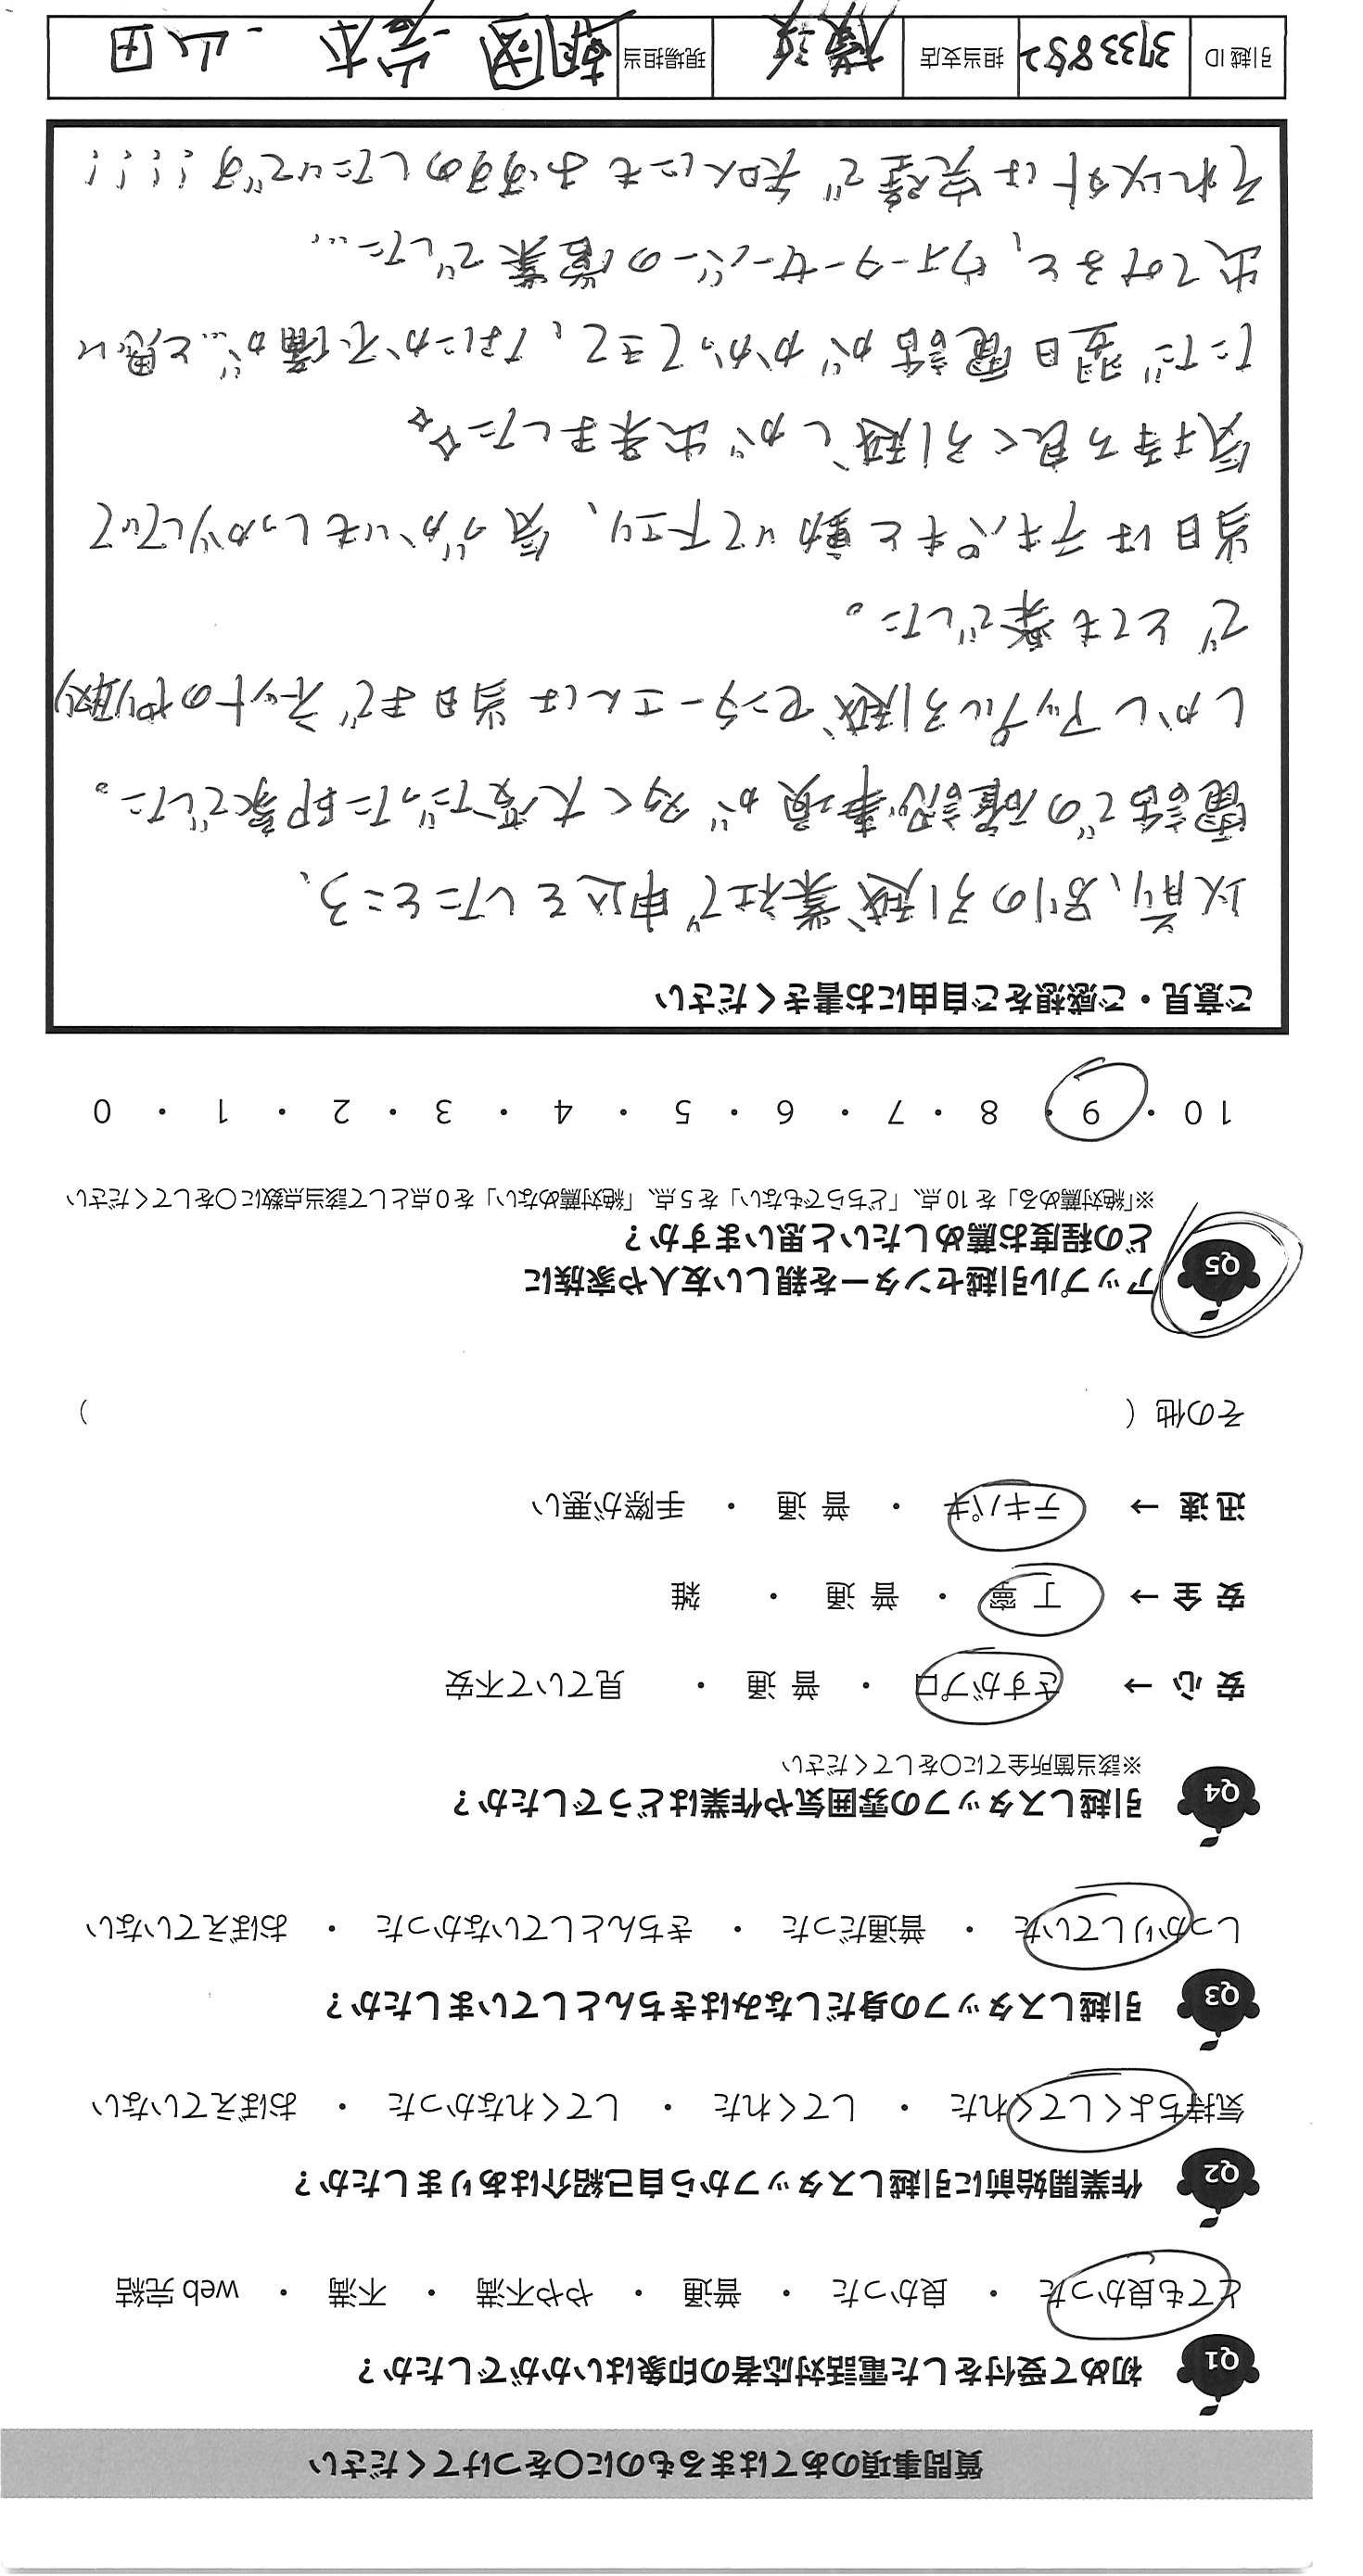 質問事項のあてはまるものに〇をつけてください
Q1 初めて受付をした電話対応者の印象はいかがでしたか？
とても良かった ・ 良かった ・ 普通 ・ やや不満 ・ 不満 ・ web 完結
Q2 作業開始前に引越しスタッフから自己紹介はありましたか？
気持ちよくしてくれた ・ してくれた ・ してくれなかった ・ おぼえていない
Q3 引越しスタッフの身だしなみはきちんとしていましたか？
しっかりしていた ・ 普通だった ・ きちんとしていなかった ・ おぼえていない
Q4 引越しスタッフの雰囲気や作業はどうでしたか？
※該当箇所全てに〇をしてください
安 心 → さすがプロ ・ 普 通 ・ 見ていて不安
安 全 → 丁 寧 ・ 普 通 ・ 雑
迅 速 → テキパキ ・ 普 通 ・ 手際が悪い
その他（ ）
Q5 アップル引越センターを親しい友人や家族に
どの程度お薦めしたいと思いますか？
※「絶対薦める」を 10 点、「どちらでもない」を 5 点、「絶対薦めない」を 0 点として該当点数に〇をしてください
10 ・ 9 ・ 8 ・ 7 ・ 6 ・ 5 ・ 4 ・ 3 ・ 2 ・ 1 ・ 0
ご意見・ご感想をご自由にお書きください
以前、別の引越業社で申込をしたところ、
電話での確認事項が多く大変だった印象でした。
しかしアップル引越センターさんは当日までネットのやり取り
でとても楽でした。
当日はテキパキと動いて下さり、気づかいもしっかりしていて
気持ち良く引越しが出来ました
ただ翌日電話がかかってきて、なにか不備が…と思い
出てみると、ウォーターサーバーの営業でした…
それ以外は完璧で知人にもおすすめしたいです!!!!
引越 ID 3733852 担当支店 横浜 現場担当 朝岡 岩本 山田